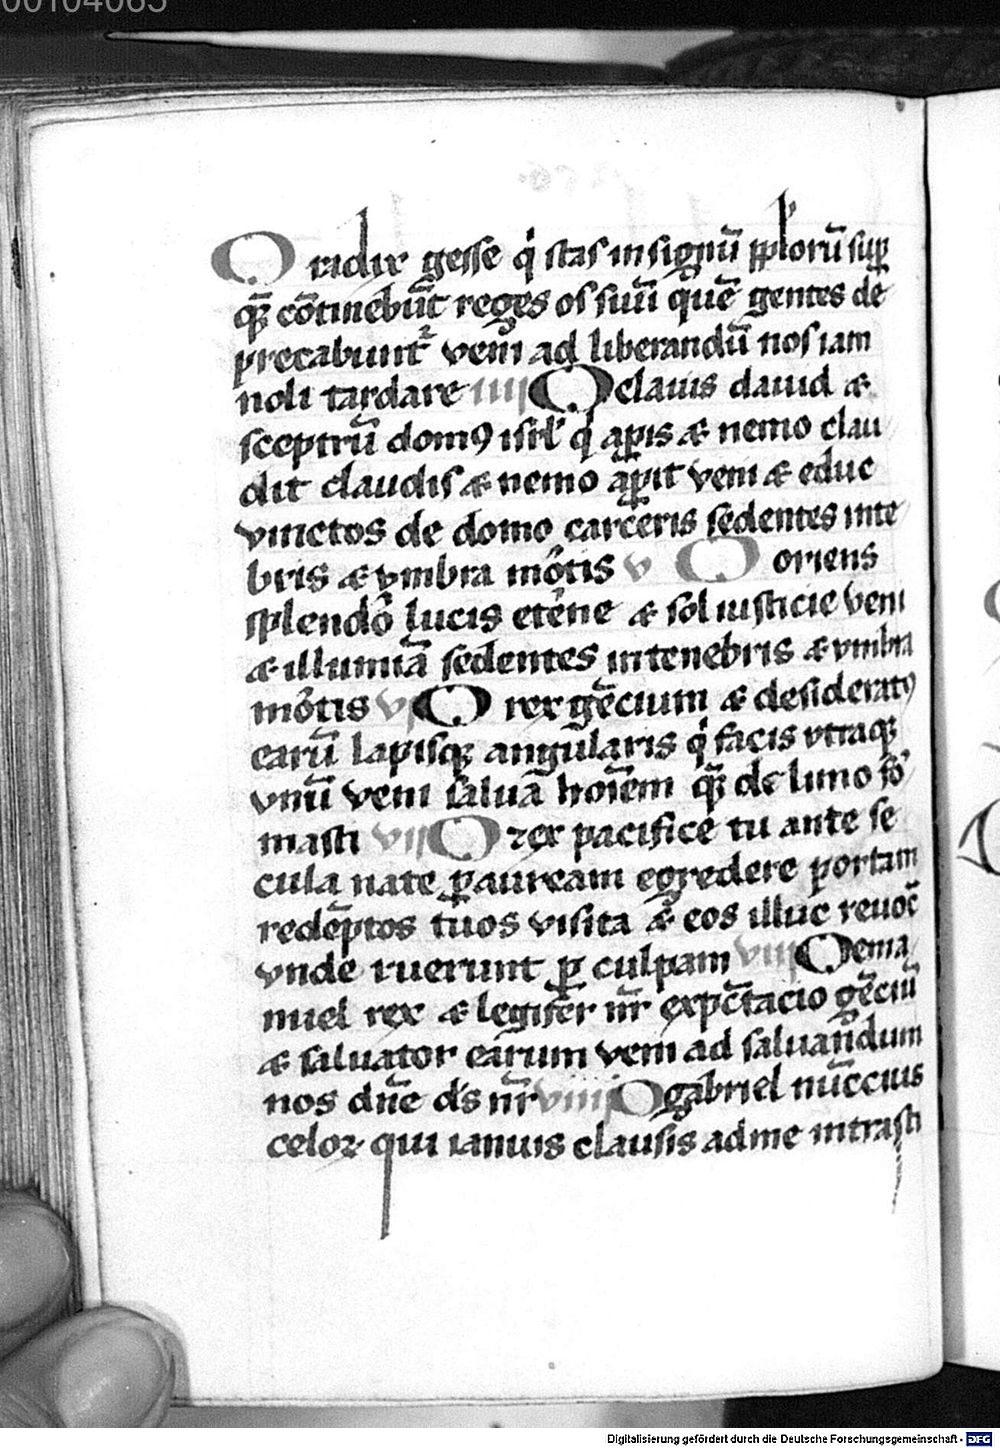 00104065
O radix gesse q stas in signū pplorū sup
q̄ʒ cōtinebūt reges os suū quē gentes de
precabunt᷑ veni ad liberandū nos iam
noli tardare iiii O clauis dauid &
sceptrū domꝰ isrl q aꝑis & nemo clau
dit claudis & nemo aꝑit veni & educ
vinctos de domo carceris sedentes in te
bris & vmbra mōtis v O oriens
splendō lucis etēne & sol iusticie veni
& illuminā sedentes in tenebris & vmbra
mōtis vi O rex gēcium & desideratꝰ
earū lapisqʒ angularis q facis vtraqʒ
vnū veni saluā hoīem q̄ʒ de limo fō
masti vii O rex pacifice tu ante se
cula nate ꝑ auream egredere portam
redēptos tuos visita & eos illuc reuoc̄
vnde ruerunt ꝑ culpam viii O ema
nuel rex & legifer nr̄ expc̄tacio gēciū
& saluator earum veni ad saluandum
nos dn̄e ds nr̄ viiii O gabriel nūccius
celoꝝ qui ianuis clausis ad me intrasti
Digitalisierung gefördert durch die Deutsche Forschungsgemeinschaft - DFG